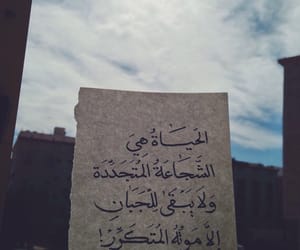 الحَيَاةُ هِيَ
الشَّجَاعَةُ المُتَجَدِّدَة
وَلَا يَبْقَىٰ لِلْجَبَانِ
إِلَّا مَوْتُهُ المُتَكَرِّرُ!